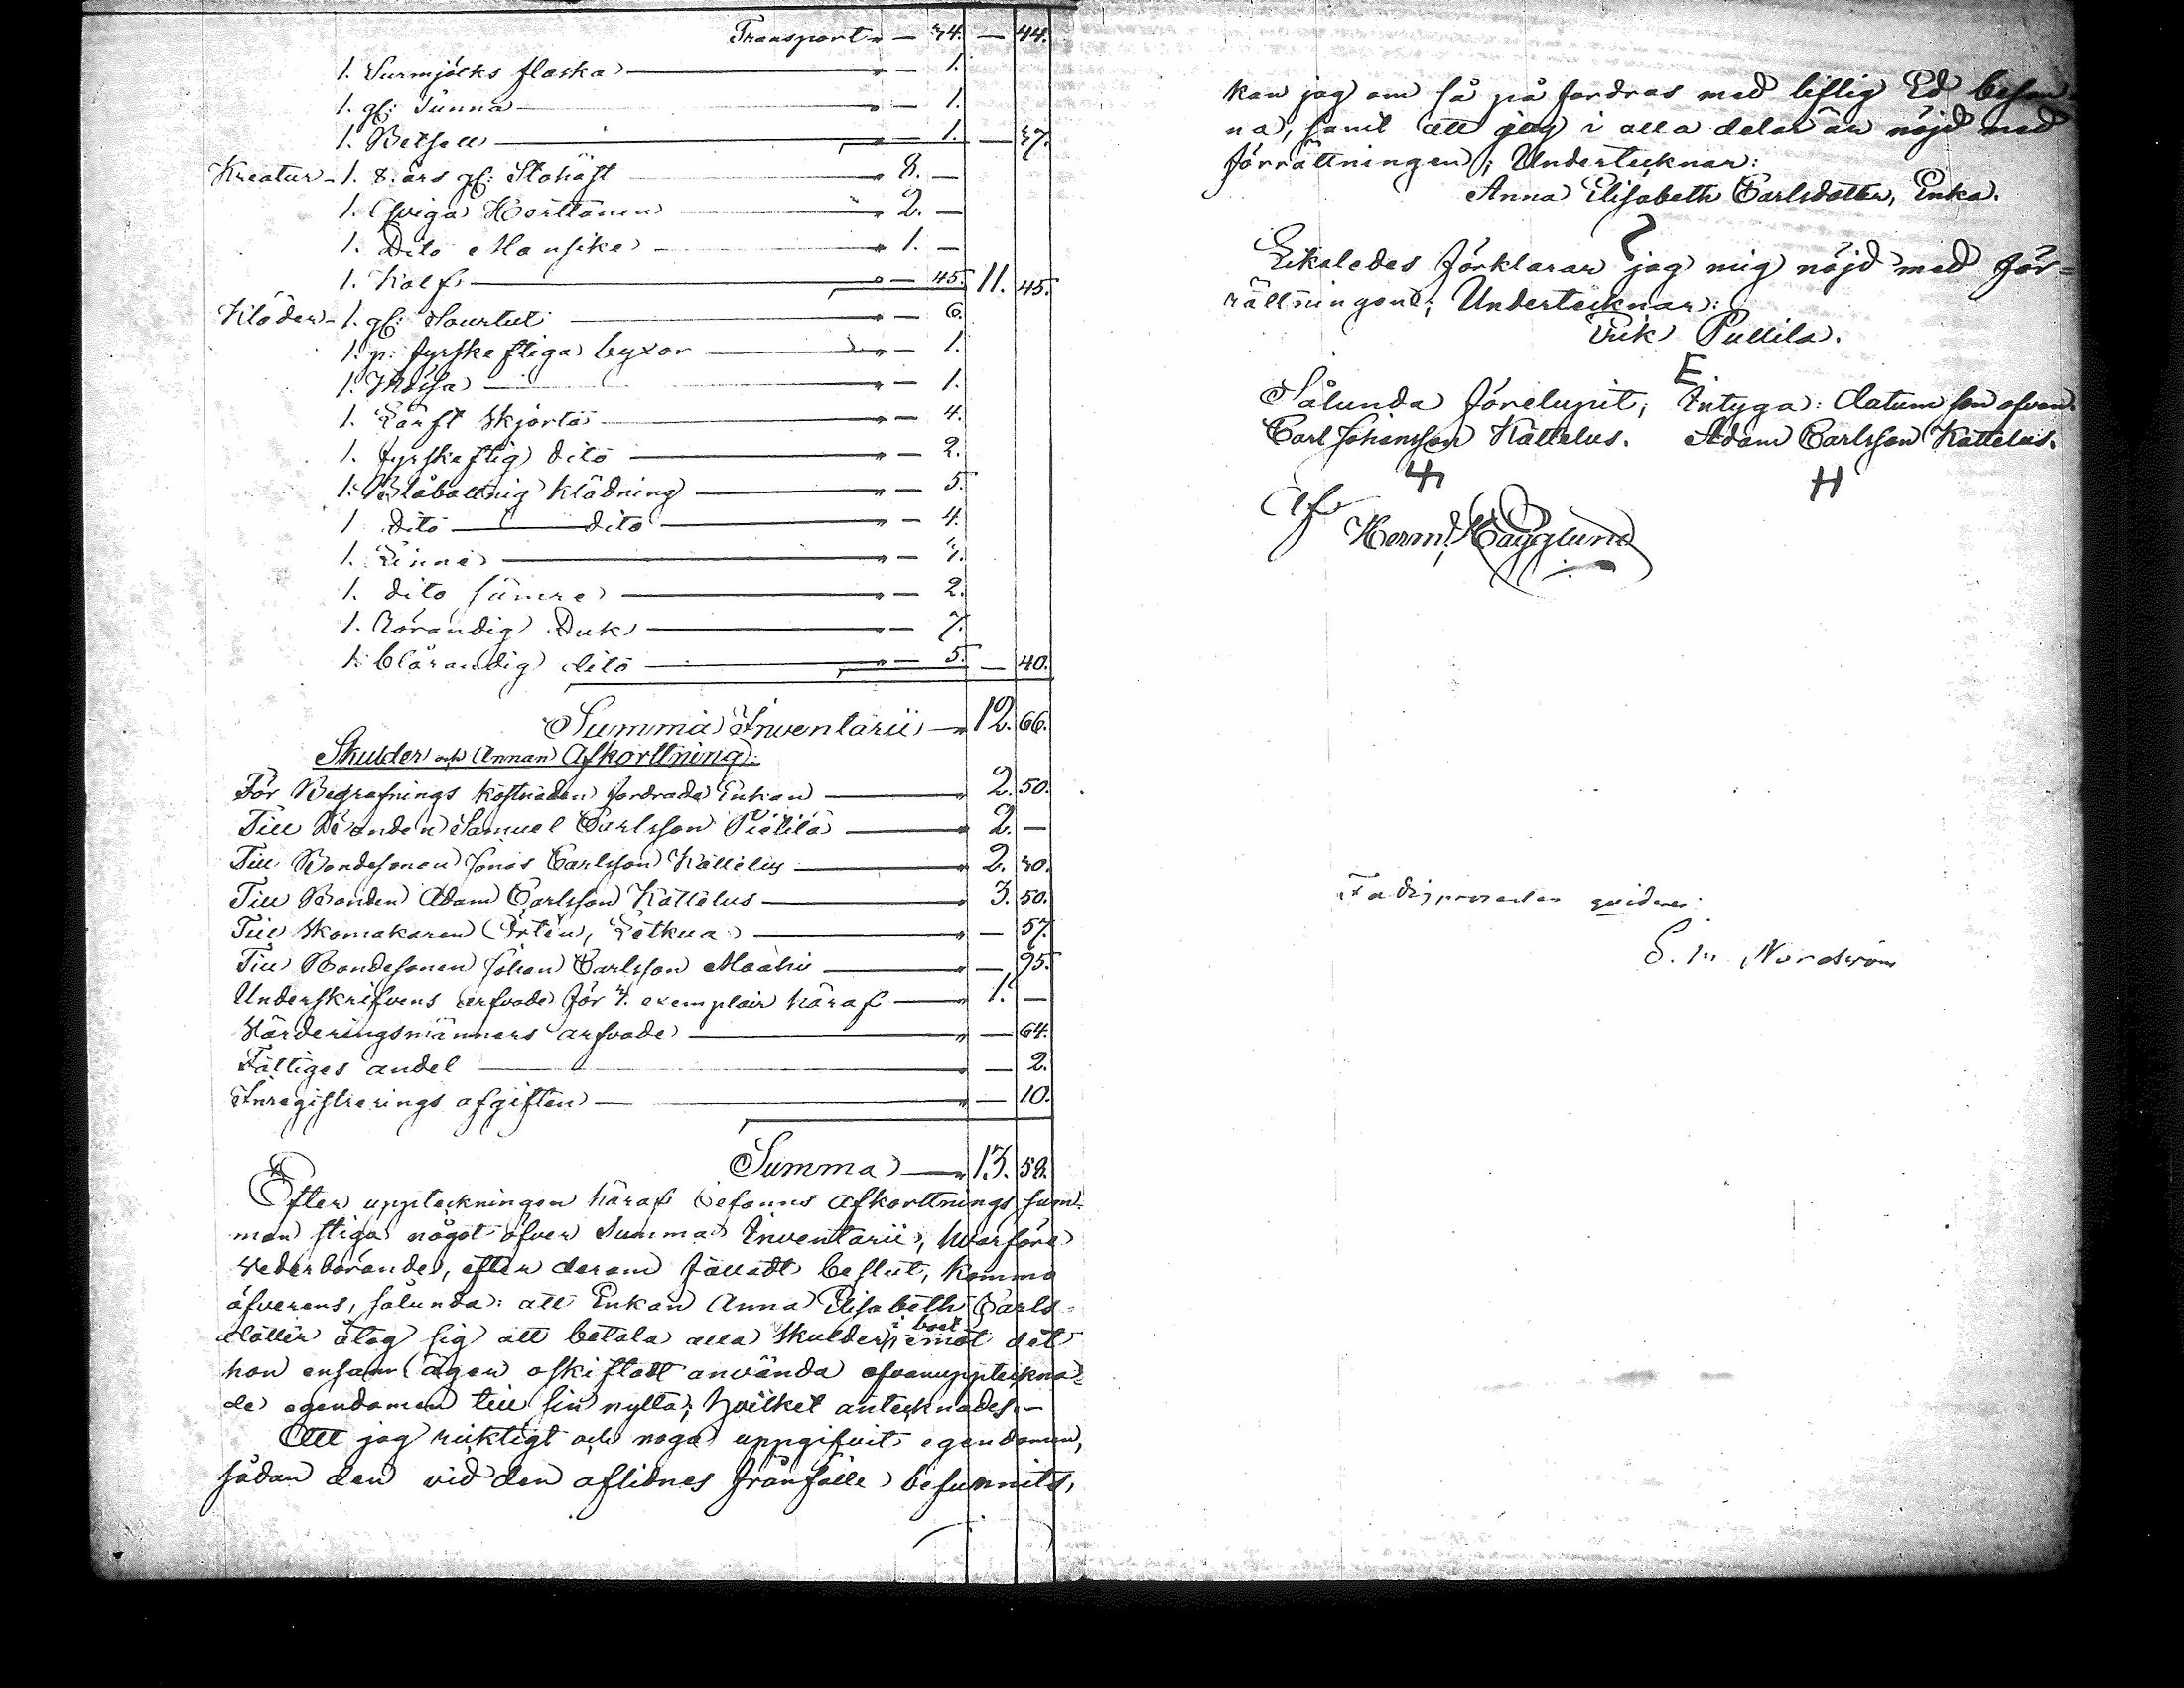 Transport " — 34. — 44.
1. Surmjölks flaska " — 1.
1. gl: Tunna " — 1.
1. Betsell " — 1. — 37.
Kreatur - 1. 8. års gl: Stohäst " 8. —
1. Qviga Horttanen " 2. —
1. Dito Mansike " 1. —
1. Kalf " — 45. 11. 45.
Kläder - 1. gl: Sourtut " — 6.
1. p: fyrskeftiga byxor " — 1.
1. Mössa " — 1.
1. Lärft Skjorta " — 4.
1. fyrskeftig dito " — 2.
1. Blåbottnig Klädning " — 5.
1 dito dito " — 4.
1. Linne " —
1. dito sämre " — 2.
1. Rörandig Duk " — 7.
1. blårandig dito " — 5. — 40.
Summa Inventarii " 12. 66.
Skulder och Annan Afkorttning:
För Begrafnings kostnaden fordrade Enkan " 2. 50.
Till Bonden Samuel Carlsson Pietilä " 2. —
Till Bondesonen Jonas Carlsson Kattelus " 2. 30.
Till Bonden Adam Carlsson Kattelus " 3. 50.
Till Skomakaren Örten, Lötkua " — 57.
Till Bondesonen Johan Carlsson Maahi " — 95.
Underskrifvens arfvode för 3. exemplair häraf " 1. —
Värderingsmänners arfvode " — 64.
Fattiges andel — 2.
Inregistrerings afgiften " — 10.
Summa " 13. 58.
Efter uppteckningen häraf befanns Afkorttnings sum-
man stiga något öfver Summa Inventarii, hvarföre
vederbörande, efter derom fattadt beslut, kommo
öfverens, sålunda: att Enkan Anna Elisabeth Carls-
dotter åtog sig att betala alla skulder i boet emot det
hon ensam äger oskiftadt använda ofvanuppteckna-
de egendomen till sin nytta; hvilket antecknades. —
Att jag ricktigt och noga uppgifvit egendomen,
sådan den vid den aflidnes frånfälle befunnits,
kan jag om så på fordras med liflig Ed besan-
na, samt att jag i alla delar är nöjd med
förrättningen; Undertecknar:
Anna Elisabeth Carlsdotter, Enka.
Likaledes förklarar jag mig nöjd med för-
rättningen; Undertecknar:
Erik Pullila.
E.
Sålunda förelupit; Intyga: datum som ofvan.
Carl Johansson Kattelus. Adam Carlsson Kattelus.
H
Af
Herm. Hägglund
qvideras:
Nordström